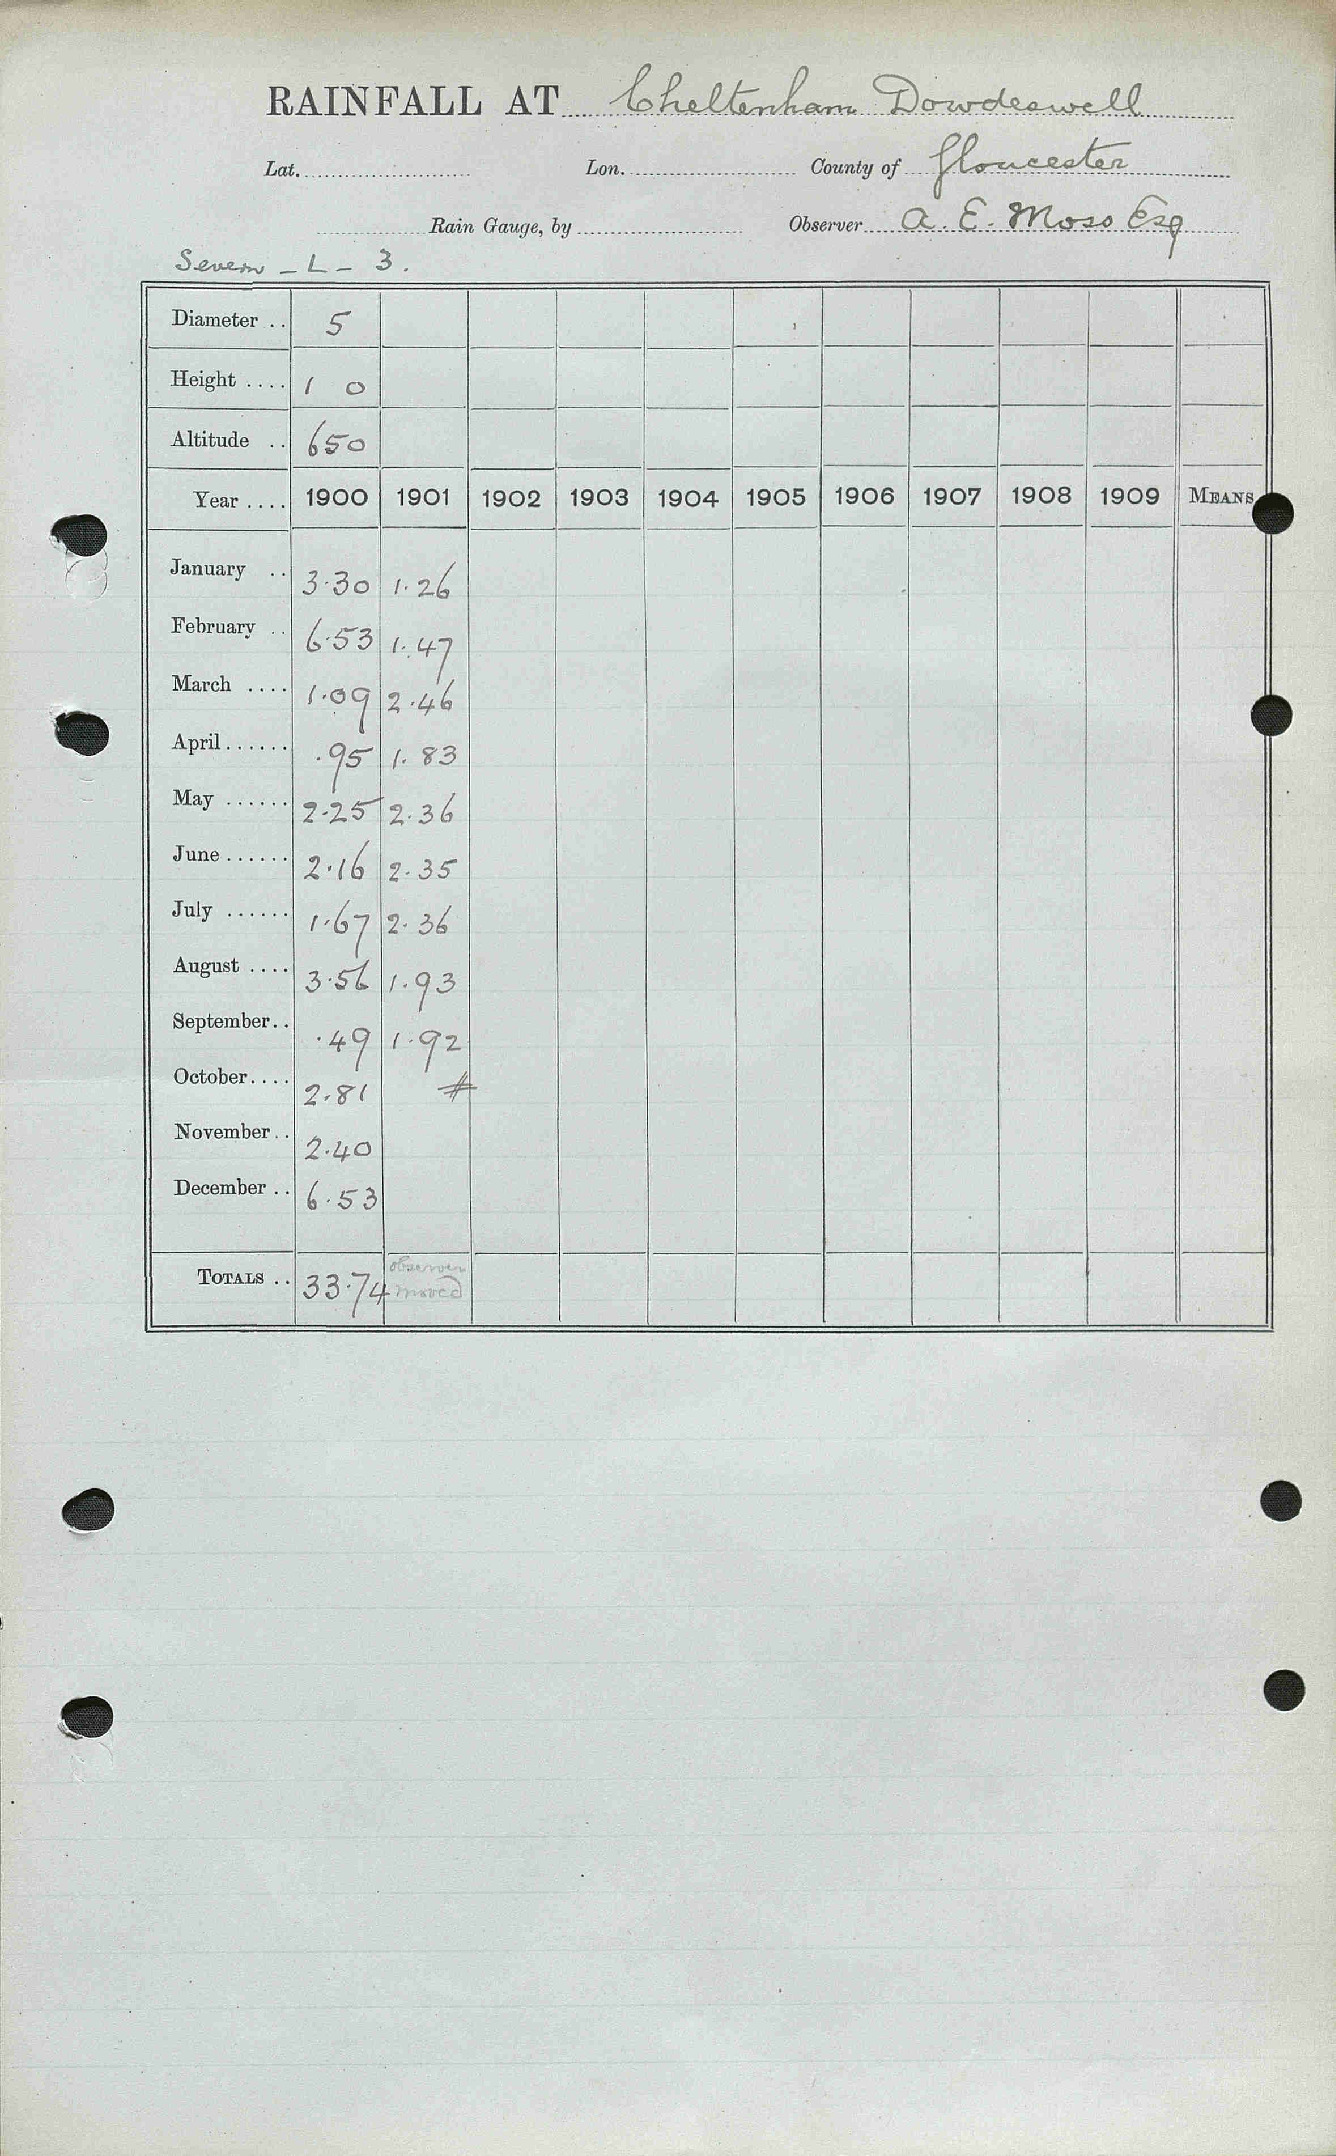 RAINFALL AT Cheltenham Dowdeswell
Lat. Lon. County of Gloucester
Rain Gauge, by Observer A. E. Moss Esq
Severn - L - 3.
Diameter .. 5
Height .... 1 0
Altitude .. 650
Year .... 1900 1901 1902 1903 1904 1905 1906 1907 1908 1909 MEANS
January .. 3.30 1.26
February .. 6.53 1.47
March .... 1.09 2.46
April...... .95 1.83
May ...... 2.25 2.36
June ...... 2.16 2.35
July ...... 1.67 2.36
August .... 3.56 1.93
September.. .49 1.92
October.... 2.81 #
November.. 2.40
December .. 6.53
TOTALS .. 33.74 observer moved